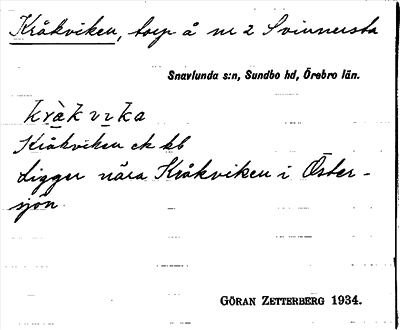 Kråkviken, torp å nr 2 Svinnersta
Snavlunda s:n, Sundbo hd, Örebro län.
kràkvıka
Kråkviken ek kb
Ligger nära Kråkviken i Öster-
sjön.
GÖRAN ZETTERBERG 1934.